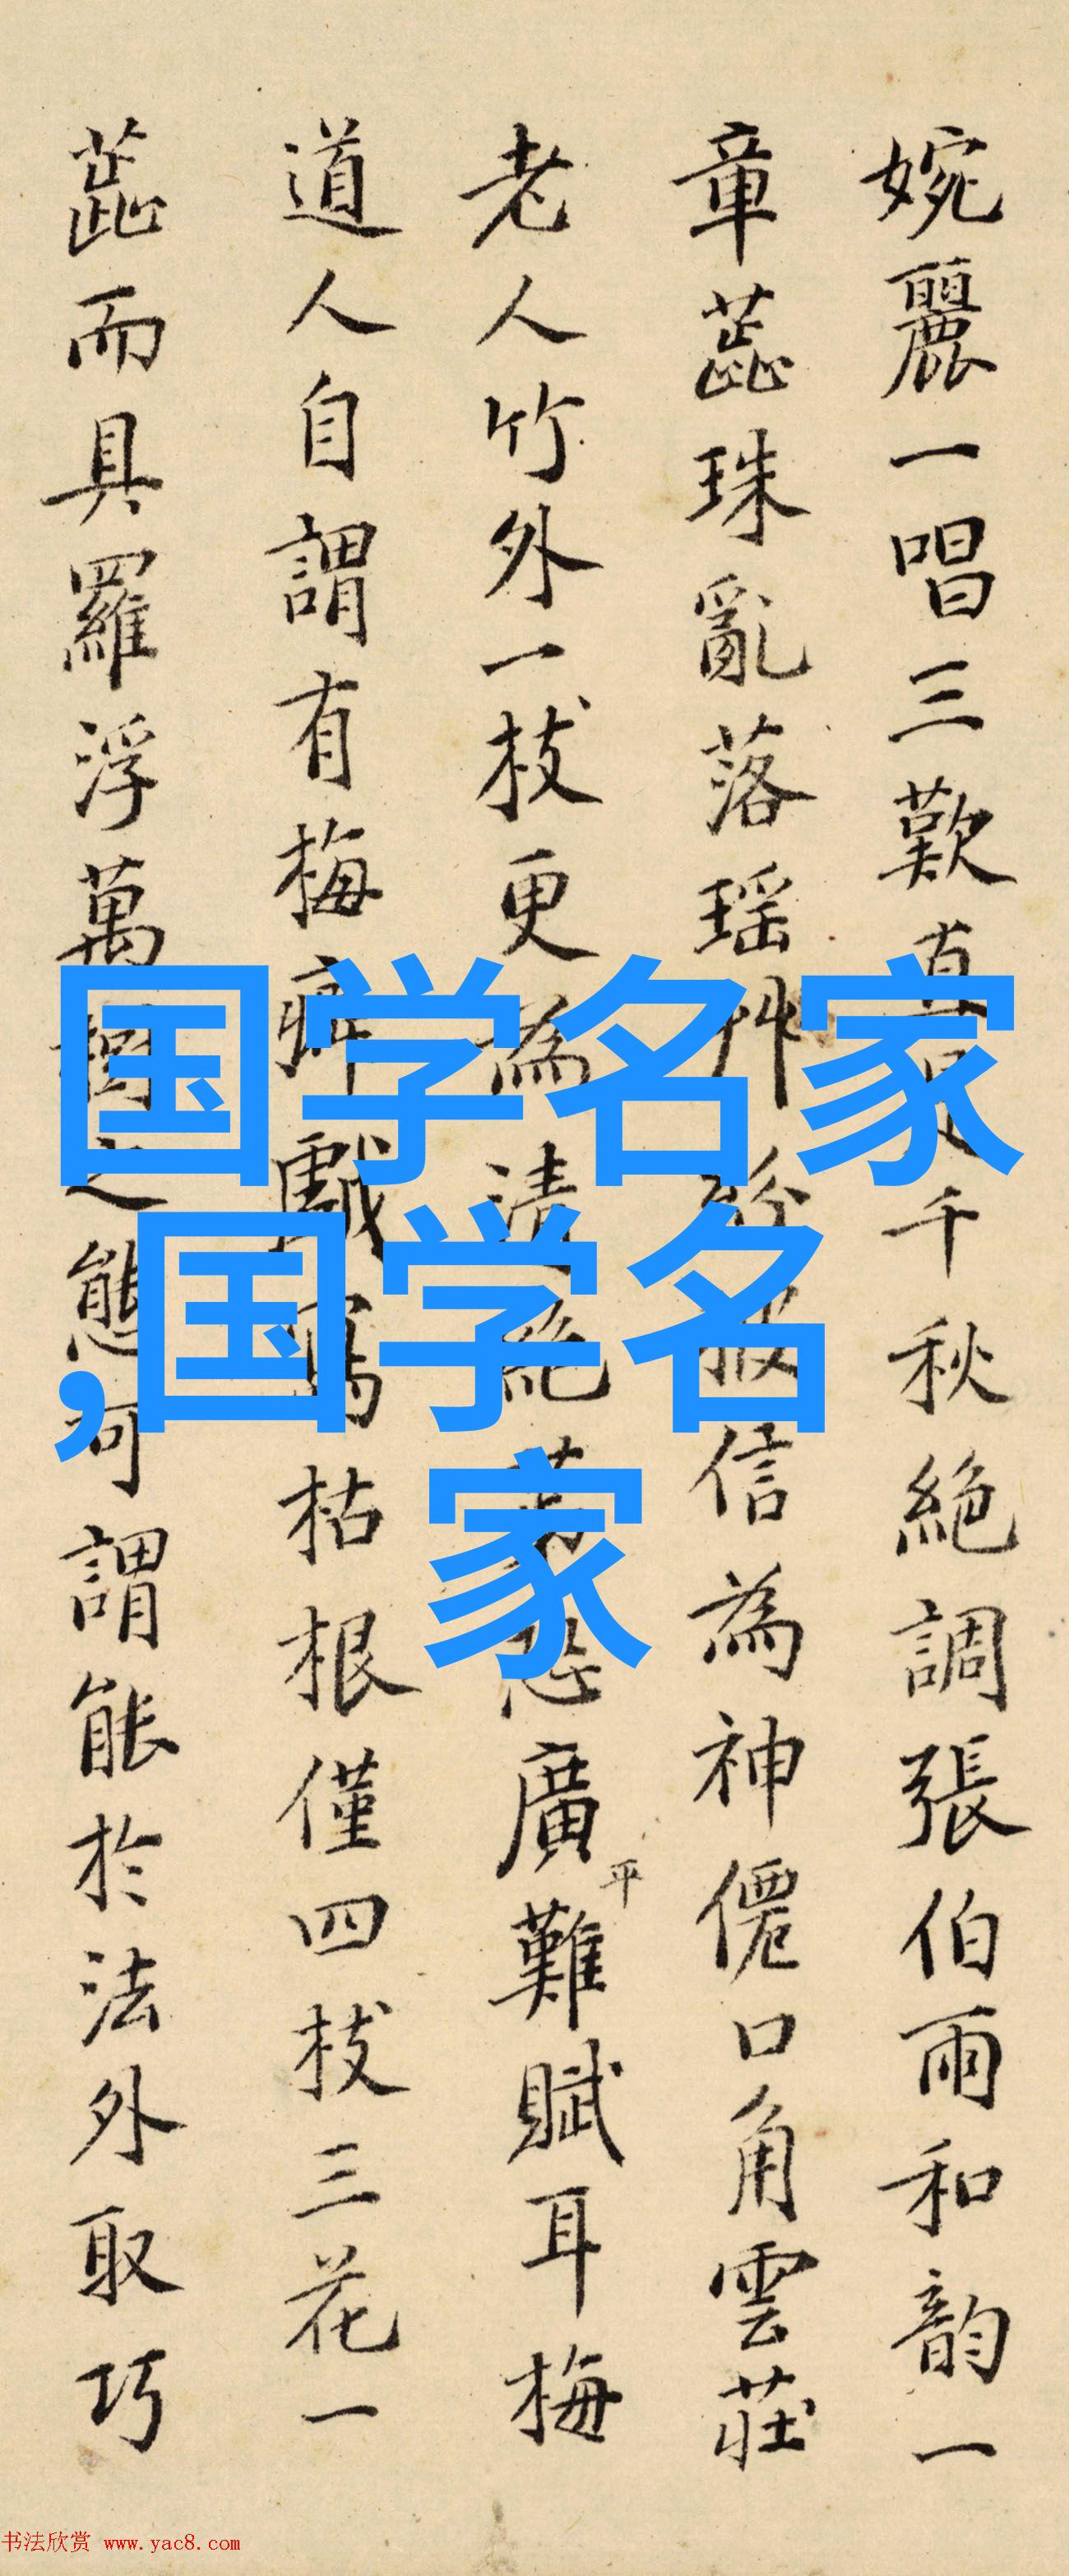 婉麗一唱三歎真是千秋絕調張伯雨和韻一
章蕊珠亂落瑶艸紛披信為神僊口角雲莊
老人竹外一枝更為清絕若恐廣平難賦耳梅
道人自謂有梅癖戲寫枯根僅四枝三花一
蕊而具羅浮萬樹之態可謂能於法外取巧
国学名家
,国学名
家
书法欣赏 www.yac8.com